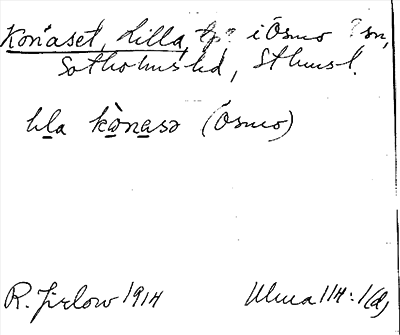 Konaset, Lilla, tp? i Ösmo ? sn,
Sotholms hd, Sthmsl.
lịla kònasə (Ösmo)
R. Jirlow 1914 Ulma 114:1(d)